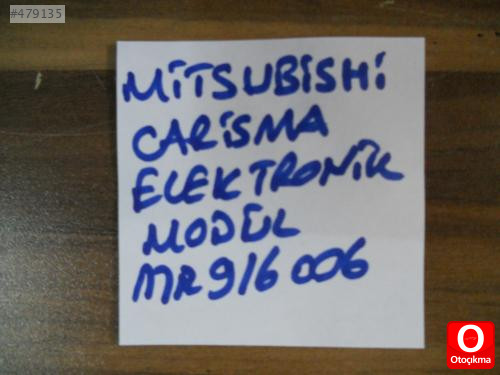 #479135
MİTSUBİSHİ
CARİSMA
ELEKTRONİK
MODÜL
MR916006
O
Otoçıkma